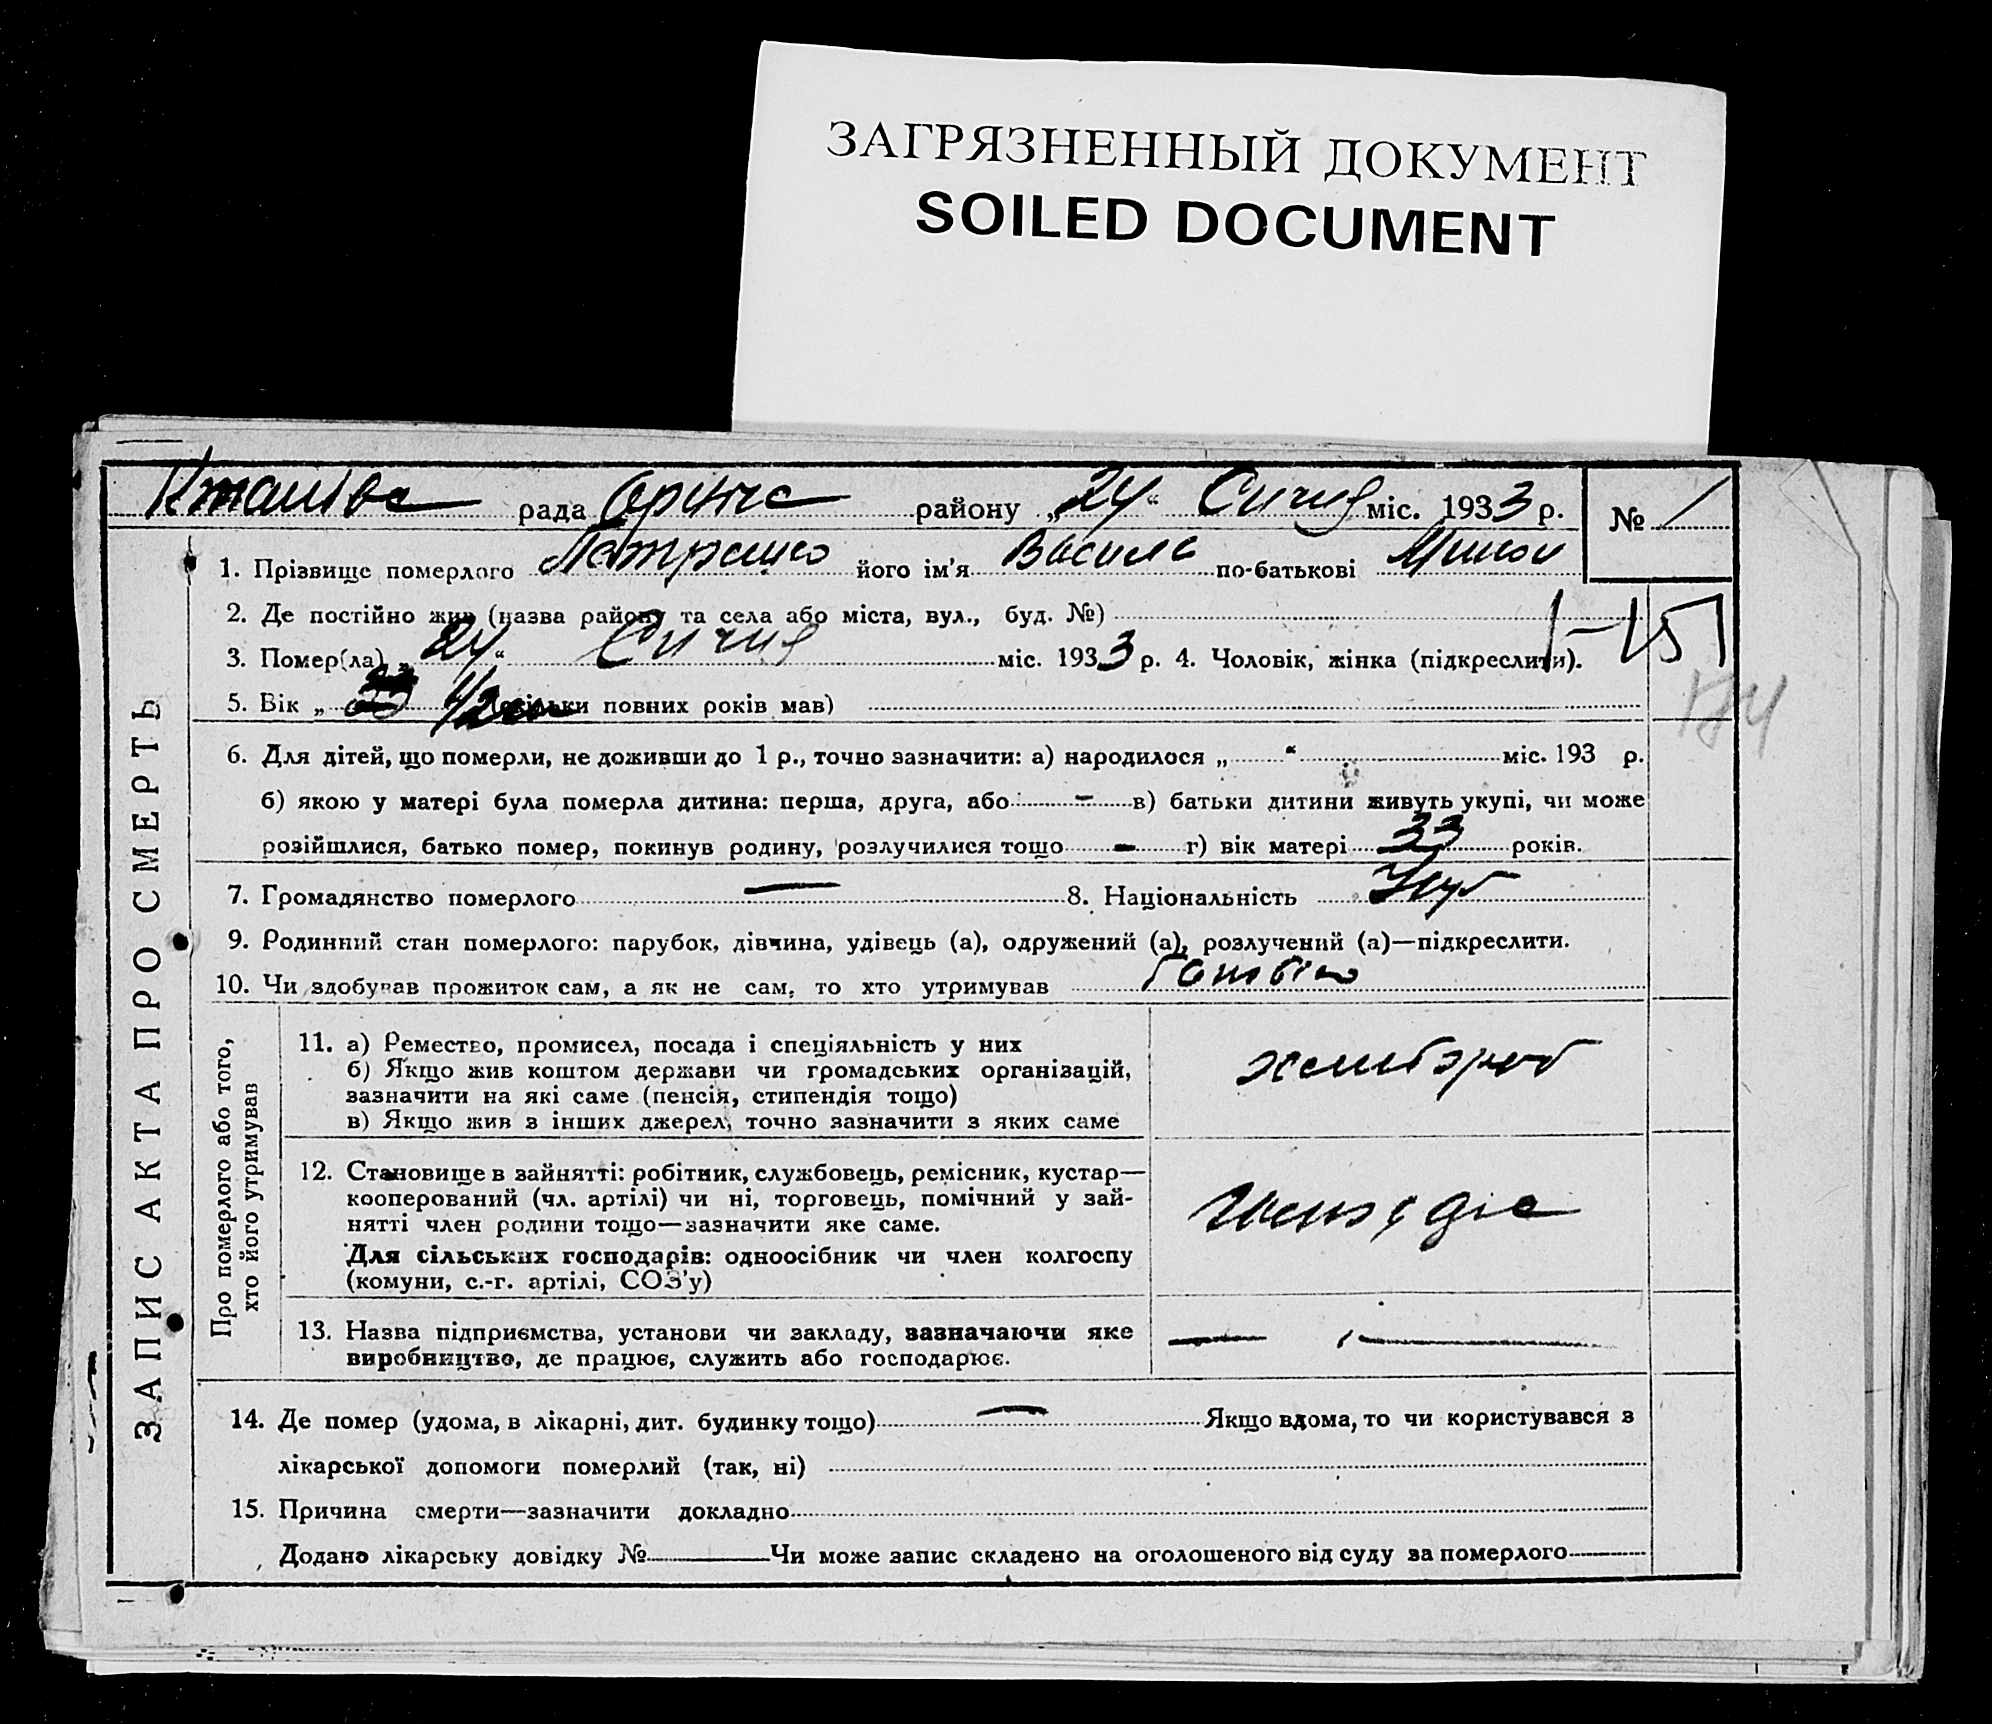 ЗАГРЯЗНЕННЫЙ ДОКУМЕНТ
SOILED DOCUMENT
рада району „24“ Січня міс. 1933 р. № 1
1. Прізвище померлого його ім'я Василь по-батькові
2. Де постійно жив (назва району та села або міста, вул., буд. №)
3. Помер(ла) „24“ Січня міс. 1933 р. 4. Чоловік, жінка (підкреслити).
5. Вік „ 1/2 (скільки повних років мав)
6. Для дітей, що померли, не доживши до 1 р., точно зазначити: а) народилося „ “ міс. 193 р.
б) якою у матері була померла дитина: перша, друга, або - в) батьки дитини живуть укупі, чи може
розійшлися, батько помер, покинув родину, розлучилися тощо - г) вік матері 33 років.
7. Громадянство померлого — 8. Національність Укр
9. Родинний стан померлого: парубок, дівчина, удівець (а), одружений (а), розлучений (а)—підкреслити.
10. Чи здобував прожиток сам, а як не сам, то хто утримував
ЗАПИС АКТА ПРО СМЕРТЬ
Про померлого або того,
хто його утримував
11. а) Ремество, промисел, посада і спеціяльність у них
б) Якщо жив коштом держави чи громадських організацій,
зазначити на які саме (пенсія, стипендія тощо)
в) Якщо жив з інших джерел, точно зазначити з яких саме
хлібороб
12. Становище в зайнятті: робітник, службовець, ремісник, кустар—
кооперований (чл. артілі) чи ні, торговець, помічний у зай-
нятті член родини тощо—зазначити яке саме.
Для сільських господарів: одноосібник чи член колгоспу
(комуни, с.-г. артілі, СОЗ'у)
13. Назва підприємства, установи чи закладу, зазначаючи яке
виробництво, де працює, служить або господарює.
14. Де помер (удома, в лікарні, дит. будинку тощо) — Якщо вдома, то чи користувався з
лікарської допомоги померлий (так, ні)
15. Причина смерти—зазначити докладно
Додано лікарську довідку № Чи може запис складено на оголошеного від суду за померлого